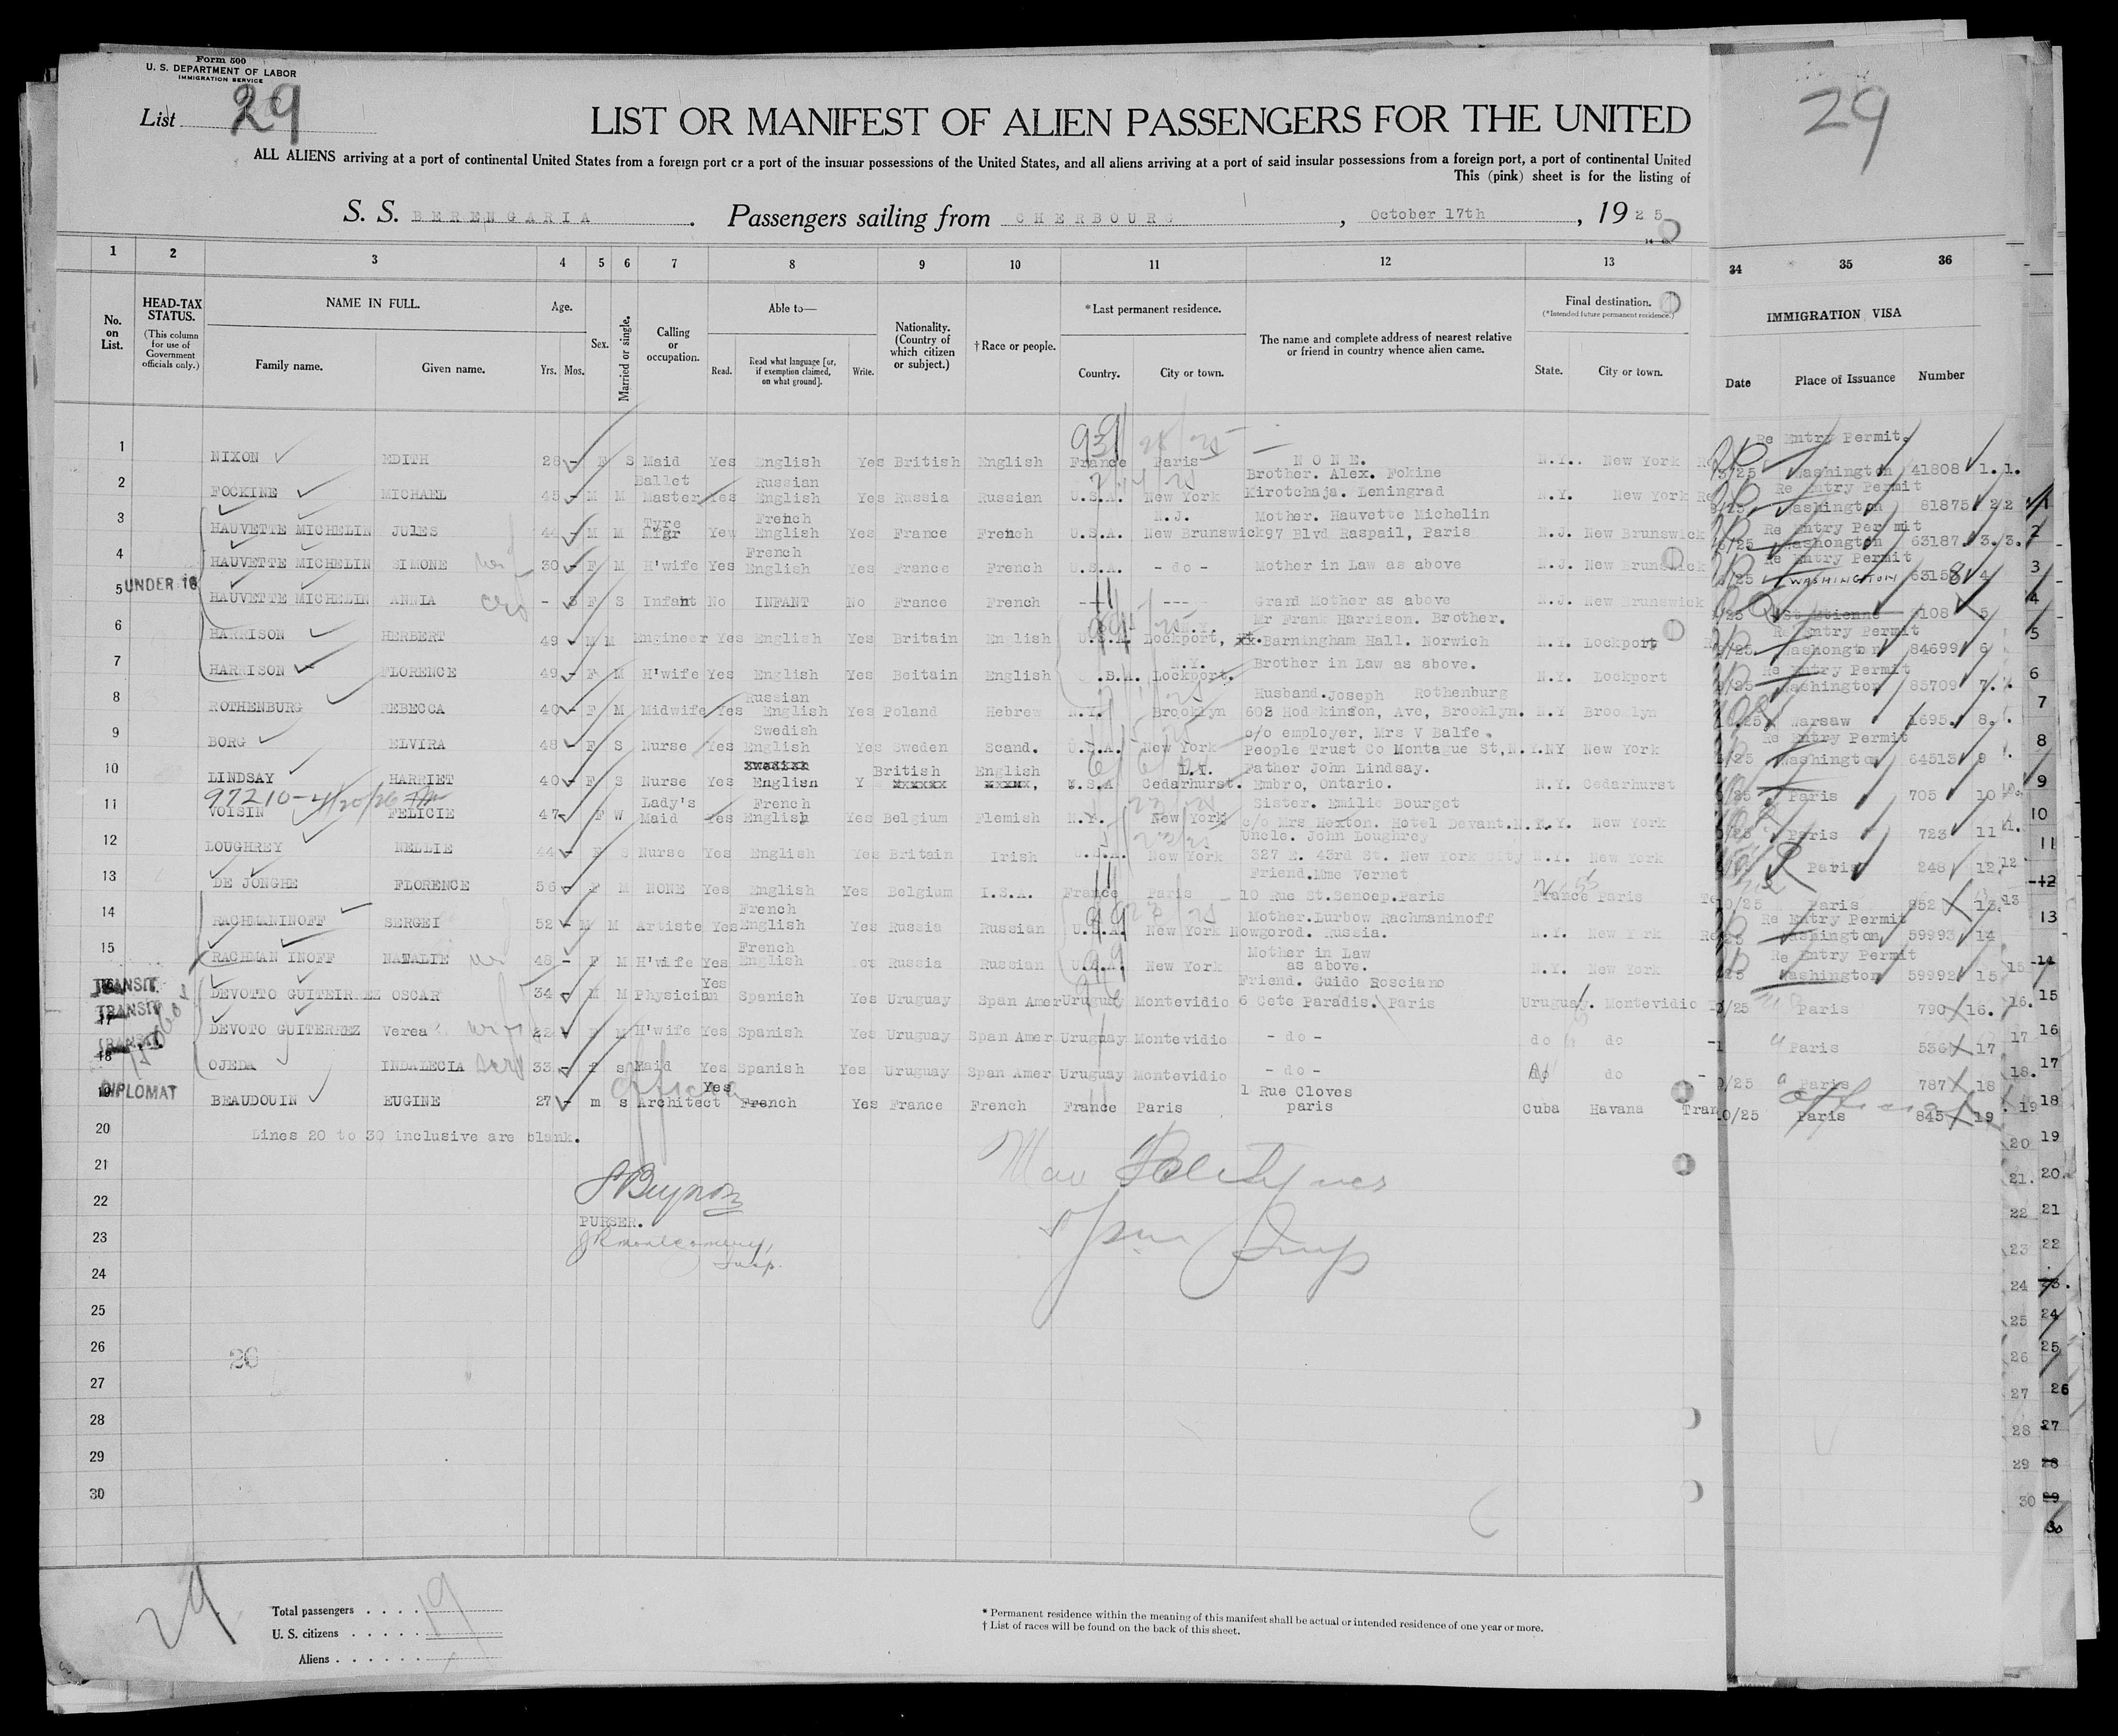 Form 500
U. S. DEPARTMENT OF LABOR
IMMIGRATION SERVICE
List 29
29
LIST OR MANIFEST OF ALIEN PASSENGERS FOR THE UNITED
ALL ALIENS arriving at a port of continental United States from a foreign port or a port of the insular possessions of the United States, and all aliens arriving at a port of said insular possessions from a foreign port, a port of continental United
This (pink) sheet is for the listing of
S. S. BERENGARIA. Passengers sailing from CHERBOURG, October 17th, 1925
1 2 3 4 5 6 7 8 9 10 11 12 13 34 35 36
No. on List.
HEAD-TAX STATUS.
(This column for use of Government officials only.)
NAME IN FULL.
Family name. Given name.
Age.
Yrs. Mos.
Sex.
Married or single.
Calling or occupation.
Able to—
Read. Read what language [or, if exemption claimed, on what ground]. Write.
Nationality. (Country of which citizen or subject.)
†Race or people.
*Last permanent residence.
Country. City or town.
The name and complete address of nearest relative or friend in country whence alien came.
Final destination.
(*Intended future permanent residence.)
State. City or town.
IMMIGRATION VISA
Date Place of Issuance Number
Re Entry Permit.
1 NIXON EDITH 28 - F S Maid Yes English Yes British English France Paris NONE. N.Y. New York Washington 41808 1. 1.
Ballet Russian Brother. Alex. Fokine Re Entry Permit
2 FOCKINE MICHAEL 45 - M M Master Yes English Yes Russia Russian U.S.A. New York Kirotchaja. Leningrad N.Y. New York Washington 81875 2 2
Tyre French N.J. Mother. Hauvette Michelin Re Entry Permit
3 HAUVETTE MICHELIN JULES 44 - M M Mfgr Yew English Yes France French U.S.A. New Brunswick 97 Blvd Raspail, Paris N.J. New Brunswick Washongton 63187. 3. 3.
French Re Entry Permit
4 HAUVETTE MICHELIN SIMONE 30 - F M H'wife Yes English Yes France French U.S.A. - do - Mother in Law as above N.J. New Brunswick WASHINGTON 63158 4
UNDER 16
5 HAUVETTE MICHELIN ANNIA - 8 F S Infant No INFANT No France French --- --- Grand Mother as above N.J. New Brunswick St Etienne 5
Mr Frank Harrison. Brother. Re Entry Permit
6 HARRISON HERBERT 49 - M M Engineer Yes English Yes Britain English U.S.A. Lockport, N.Y. Barningham Hall. Norwich N.Y. Lockport Washongton 84699 6
N.Y. Re Entry Permit
7 HARRISON FLORENCE 49 - F M H'wife Yes English Yes Beitain English Lockport. Brother in Law as above. N.Y. Lockport Washington 85709 7.
Russian Husband. Joseph Rothenburg
8 ROTHENBURG REBECCA 40 - F M Midwife Yes English Yes Poland Hebrew N.Y. Brooklyn 602 Hodkinson, Ave, Brooklyn. N.Y Brooklyn Warsaw 1695. 8.
Swedish c/o employer, Mrs V Balfe. Re Entry Permit
9 BORG ELVIRA 48 - F S Nurse Yes English Yes Sweden Scand. U.S.A. New York People Trust Co Montague St, N.Y. NY New York Washington 64513 9
British English L.I. Father John Lindsay.
10 LINDSAY HARRIET 40 - F S Nurse Yes English Y U.S.A Cedarhurst. Embro, Ontario. N.Y. Cedarhurst Paris 705 10
97210-4/20/26
Lady's French Sister. Emilie Bourget
11 VOISIN FELICIE 47 F W Maid Yes English Yes Belgium Flemish N.Y. New York c/o Mrs Hoxton. Hotel Devant. N.Y. N.Y. New York Paris 723 11
Uncle. John Loughrey
12 LOUGHREY NELLIE 44 - F S Nurse Yes English Yes Britain Irish U.S.A. New York 327 E. 43rd St. New York City N.Y. New York Paris 248 12
Friend. Mme Vernet
13 DE JONGHE FLORENCE 56 F M NONE Yes English Yes Belgium I.S.A. France Paris 10 Rue St. Senoep. Paris France Paris 10/25 Paris 852 13
French Mother. Lurbow Rachmaninoff Re Entry Permit
14 RACHMANINOFF SERGEI 52 - M M Artiste Yes English Yes Russia Russian U.S.A. New York Nowgorod. Russia. N.Y. New York Washington 59993 14
French Mother in Law Re Entry Permit
15 RACHMAN INOFF NATALIE 48 - F M H'wife Yes English Russia Russian U.S.A. New York as above. N.Y. New York Washington 59992 15
TRANSIT Yes Friend. Guido Rosciano
DEVOTTO GUITEIRREZ OSCAR 34 M M Physician Spanish Yes Uruguay Span Amer Uruguay Montevidio 6 Cete Paradis. Paris Uruguay. Montevidio 10/25 Paris 790 16.
TRANSIT
17 DEVOTO GUITERREZ Verea wife 22 F M H'wife Yes Spanish Yes Uruguay Span Amer Uruguay Montevidio - do - do do Paris 536 17
TRANSIT
18 OJEDA INDALECIA serv 33 - f s Maid Yes Spanish Yes Uruguay Span Amer Uruguay Montevidio - do - do do 10/25 Paris 787 18
DIPLOMAT Official Yes 1 Rue Cloves
19 BEAUDOUIN EUGINE 27 - m s Architect French Yes France French France Paris paris Cuba Havana Tran 10/25 Paris 845 19
20 Lines 20 to 30 inclusive are blank.
21
22
PURSER.
23
JR Montgomery,
Insp.
24
25
26
26
27
28
29
30
29
Total passengers . . . . 19
U. S. citizens . . . . .
Aliens . . . . . .
* Permanent residence within the meaning of this manifest shall be actual or intended residence of one year or more.
† List of races will be found on the back of this sheet.